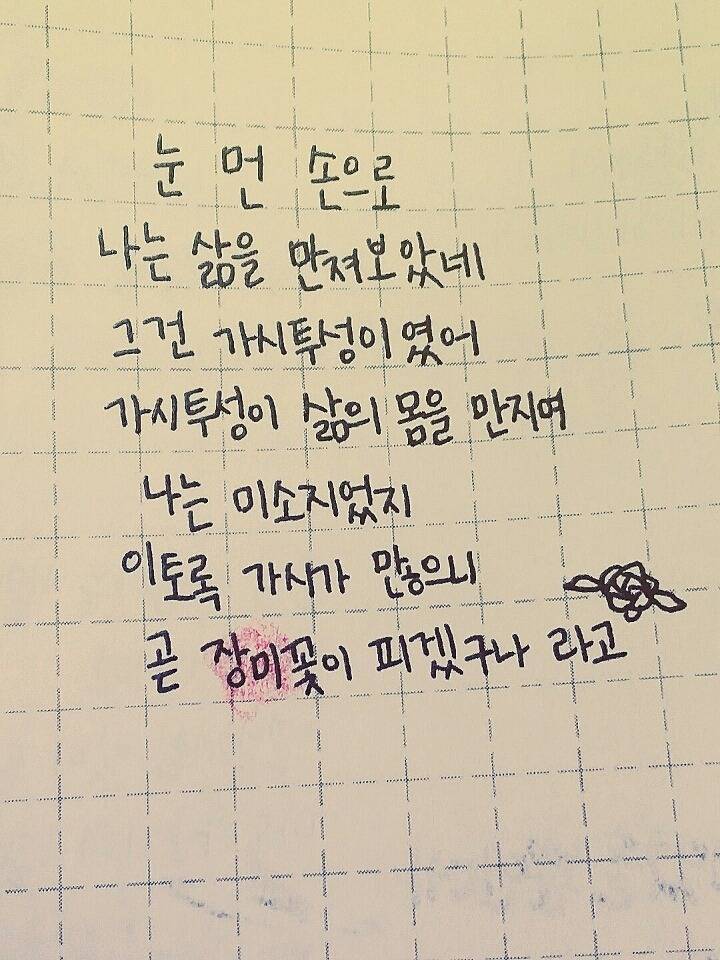 눈 먼 손으로
나는 삶을 만져보았네
그건 가시투성이였어
가시투성이 삶의 몸을 만지며
나는 미소지었지
이토록 가시가 많으니
곧 장미꽃이 피겠구나 라고